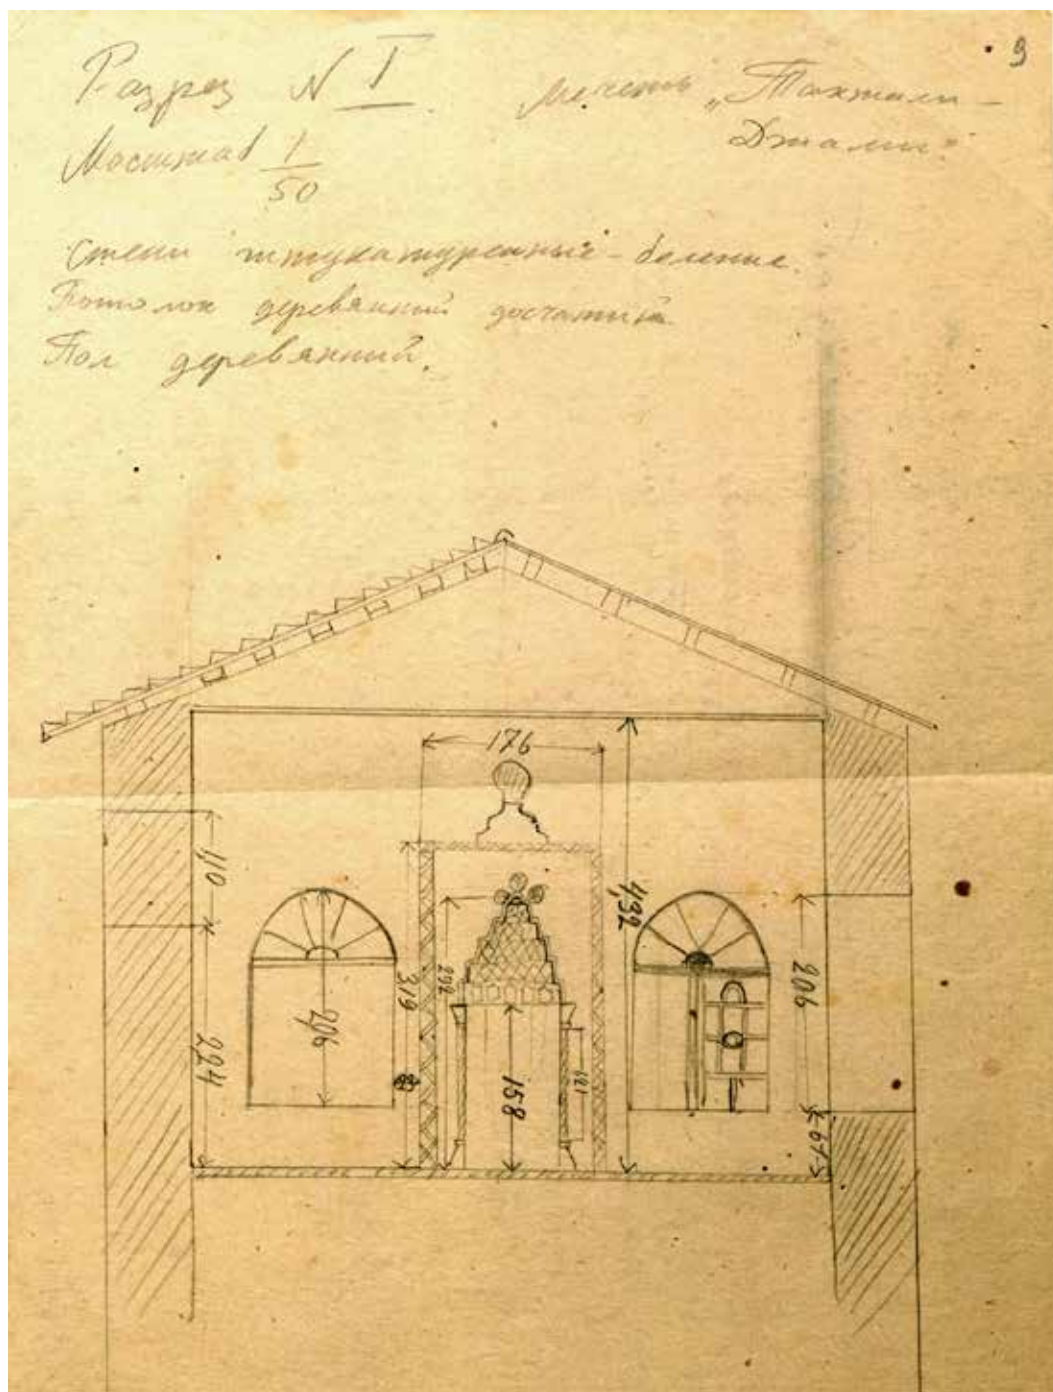 9
Разрез N I
мечеть „Тахтали-
Джами"
Масштаб 1/50
Стени штукатуренные - беление.
Потолок деревянний досчатий.
Пол деревянний.
176
110
4,32
206
319
292
206
224
158
121